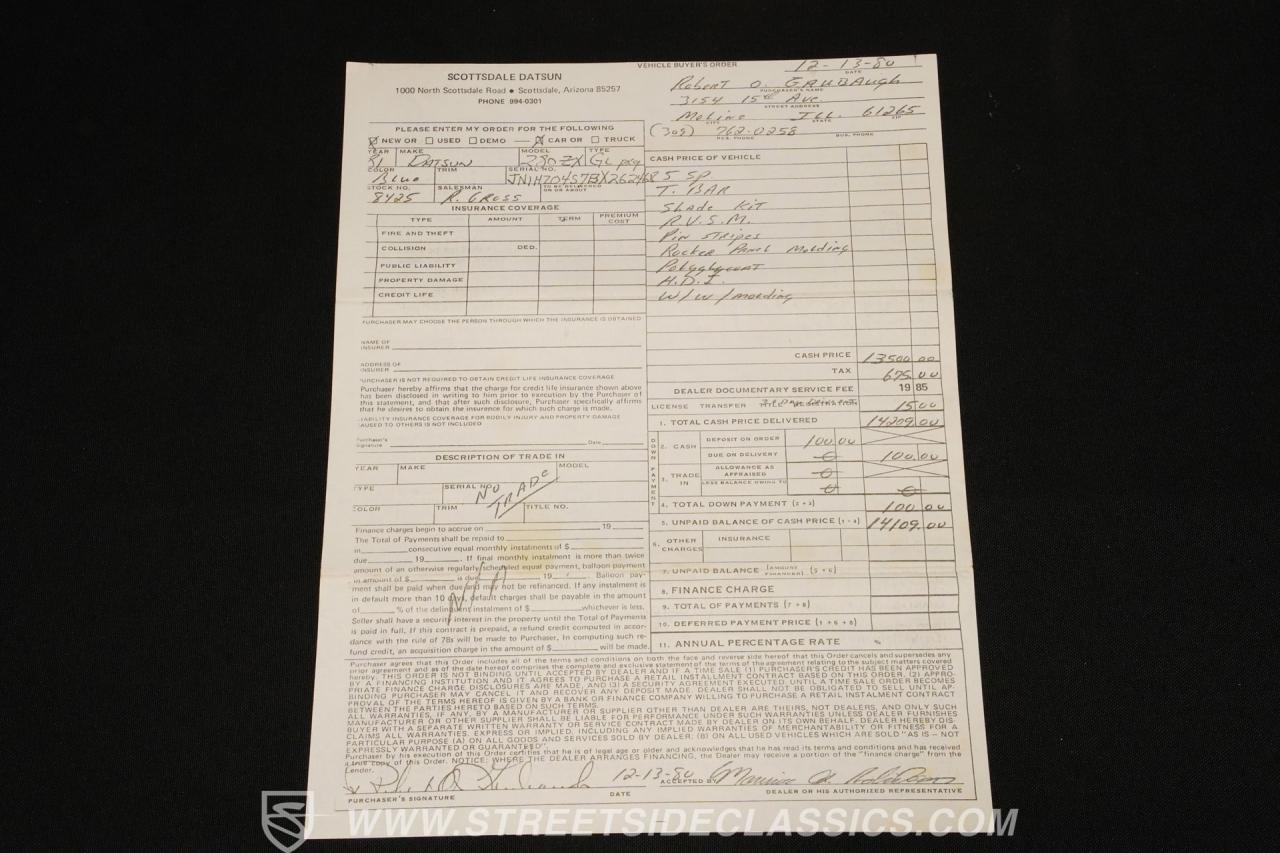 VEHICLE BUYER'S ORDER
12-13-80
DATE
SCOTTSDALE DATSUN
1000 North Scottsdale Road ● Scottsdale, Arizona 85257
PHONE 994-0301
Robert O. GAUBAugh
PURCHASER'S NAME
3154 15th Ave.
STREET ADDRESS
Moline ILL. 61265
CITY STATE ZIP
(309) 762-0258
RES. PHONE BUS. PHONE
PLEASE ENTER MY ORDER FOR THE FOLLOWING
NEW OR USED DEMO CAR OR TRUCK
YEAR MAKE MODEL TYPE
81 DATSUN 280ZX GL pkg
COLOR TRIM SERIAL NO.
Blue JN1HZ04S7BX262468
STOCK NO. SALESMAN TO BE DELIVERED ON OR ABOUT
8425 R. GROSS
INSURANCE COVERAGE
TYPE AMOUNT TERM PREMIUM COST
FIRE AND THEFT
COLLISION DED.
PUBLIC LIABILITY
PROPERTY DAMAGE
CREDIT LIFE
PURCHASER MAY CHOOSE THE PERSON THROUGH WHICH THE INSURANCE IS OBTAINED
NAME OF INSURER
ADDRESS OF INSURER
PURCHASER IS NOT REQUIRED TO OBTAIN CREDIT LIFE INSURANCE COVERAGE
Purchaser hereby affirms that the charge for credit life insurance shown above
has been disclosed in writing to him prior to execution by the Purchaser of
this statement, and that after such disclosure, Purchaser specifically affirms
that he desires to obtain the insurance for which such charge is made.
LIABILITY INSURANCE COVERAGE FOR BODILY INJURY AND PROPERTY DAMAGE
CAUSED TO OTHERS IS NOT INCLUDED
Purchaser's Signature Date
DESCRIPTION OF TRADE IN
YEAR MAKE MODEL
TYPE SERIAL NO.
NO TRADE
COLOR TRIM TITLE NO.
Finance charges begin to accrue on 19
The Total of Payments shall be repaid to
in consecutive equal monthly instalments of $
due 19 . If final monthly instalment is more than twice
amount of an otherwise regularly scheduled equal payment, balloon payment
in amount of $ is due 19 . Balloon pay-
ment shall be paid when due and may not be refinanced. If any instalment is
in default more than 10 days, default charges shall be payable in the amount
of % of the delinquent instalment of $ whichever is less.
N/A
Seller shall have a security interest in the property until the Total of Payments
is paid in full. If this contract is prepaid, a refund credit computed in accor-
dance with the rule of 78s will be made to Purchaser. In computing such re-
fund credit, an acquisition charge in the amount of $ will be made.
CASH PRICE OF VEHICLE
5 SP.
T. BAR
Shade Kit
R.V.S.M.
Pin Stripes
Rocker Panel Molding
Polyglycoat
H.D.I.
W/W/molding
CASH PRICE 13500.00
TAX 675.00
DEALER DOCUMENTARY SERVICE FEE 19 85
LICENSE TRANSFER 15.00
1. TOTAL CASH PRICE DELIVERED 14209.00
DOWN PAYMENT
2. CASH DEPOSIT ON ORDER 100.00
DUE ON DELIVERY 0 100.00
3. TRADE IN ALLOWANCE AS APPRAISED 0
LESS BALANCE OWING TO 0 0
4. TOTAL DOWN PAYMENT (2 + 3) 100.00
5. UNPAID BALANCE OF CASH PRICE (1 - 4) 14109.00
6. OTHER CHARGES INSURANCE
7. UNPAID BALANCE (AMOUNT FINANCED) (5 + 6)
8. FINANCE CHARGE
9. TOTAL OF PAYMENTS (7 + 8)
10. DEFERRED PAYMENT PRICE (1 + 6 + 8)
11. ANNUAL PERCENTAGE RATE %
Purchaser agrees that this Order includes all of the terms and conditions on both the face and reverse side hereof that this Order cancels and supersedes any
prior agreement and as of the date hereof comprises the complete and exclusive statement of the terms of the agreement relating to the subject matters covered
hereby. THIS ORDER IS NOT BINDING UNTIL ACCEPTED BY DEALER AND IF A TIME SALE (1) PURCHASER'S CREDIT HAS BEEN APPROVED
BY A FINANCING INSTITUTION AND IT AGREES TO PURCHASE A RETAIL INSTALLMENT CONTRACT BASED ON THIS ORDER, (2) APPRO-
PRIATE FINANCE CHARGE DISCLOSURES ARE MADE, AND (3) A SECURITY AGREEMENT EXECUTED. UNTIL A TIME SALE ORDER BECOMES
BINDING PURCHASER MAY CANCEL IT AND RECOVER ANY DEPOSIT MADE. DEALER SHALL NOT BE OBLIGATED TO SELL UNTIL AP-
PROVAL OF THE TERMS HEREOF IS GIVEN BY A BANK OR FINANCE COMPANY WILLING TO PURCHASE A RETAIL INSTALMENT CONTRACT
BETWEEN THE PARTIES HERETO BASED ON SUCH TERMS.
ALL WARRANTIES, IF ANY, BY A MANUFACTURER OR SUPPLIER OTHER THAN DEALER ARE THEIRS, NOT DEALERS, AND ONLY SUCH
MANUFACTURER OR OTHER SUPPLIER SHALL BE LIABLE FOR PERFORMANCE UNDER SUCH WARRANTIES UNLESS DEALER FURNISHES
BUYER WITH A SEPARATE WRITTEN WARRANTY OR SERVICE CONTRACT MADE BY DEALER ON ITS OWN BEHALF. DEALER HEREBY DIS-
CLAIMS ALL WARRANTIES, EXPRESS OR IMPLIED, INCLUDING ANY IMPLIED WARRANTIES OF MERCHANTABILITY OR FITNESS FOR A
PARTICULAR PURPOSE (A) ON ALL GOODS AND SERVICES SOLD BY DEALER; (B) ON ALL USED VEHICLES WHICH ARE SOLD "AS IS – NOT
EXPRESSLY WARRANTED OR GUARANTEED".
Purchaser by his execution of this Order certifies that he is of legal age or older and acknowledges that he has read its terms and conditions and has received
a true copy of this Order. NOTICE: WHERE THE DEALER ARRANGES FINANCING, the Dealer may receive a portion of the "finance charge" from the
Lender.
12-13-80 ACCEPTED BY
PURCHASER'S SIGNATURE DATE DEALER OR HIS AUTHORIZED REPRESENTATIVE
WWW.STREETSIDECLASSICS.COM